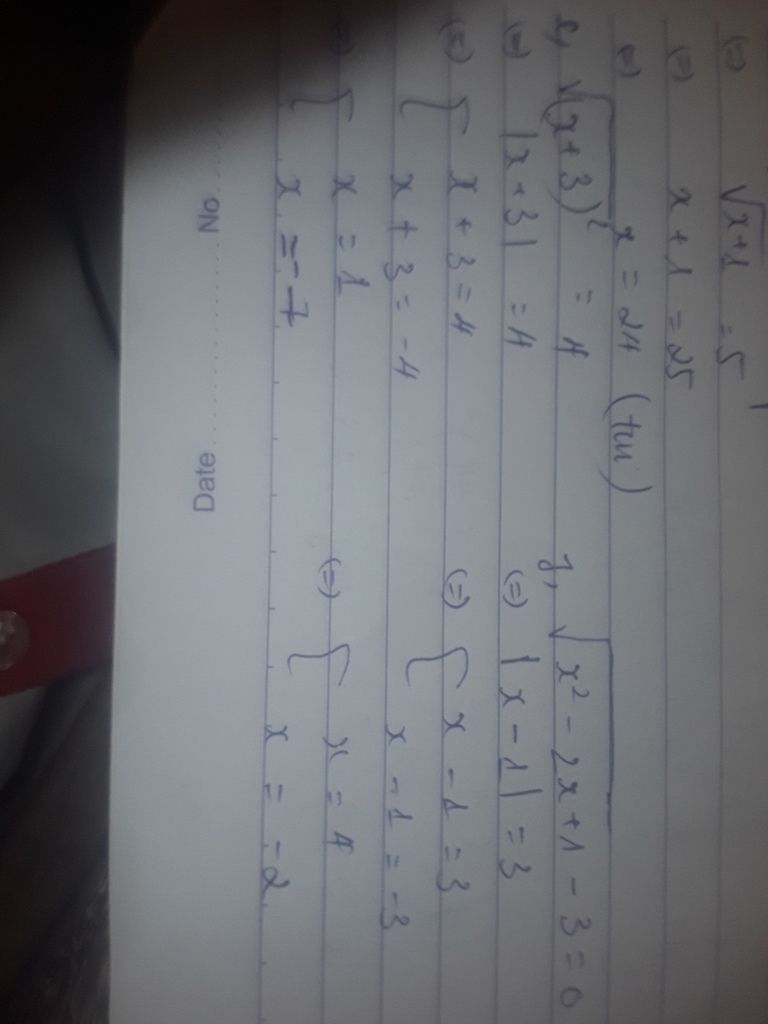 (=) √x+1 = 5
(=) x + 1 = 25
(=) x = 24 (tm)
e, √(x+3)² = 4
(=) |x+3| = 4
(=) [ x + 3 = 4
x + 3 = -4
(=) [ x = 1
x = -7
f, √x² - 2x + 1 - 3 = 0
(=) |x - 1| = 3
(=) [ x - 1 = 3
x - 1 = -3
(=) [ x = 4
x = -2
No
Date